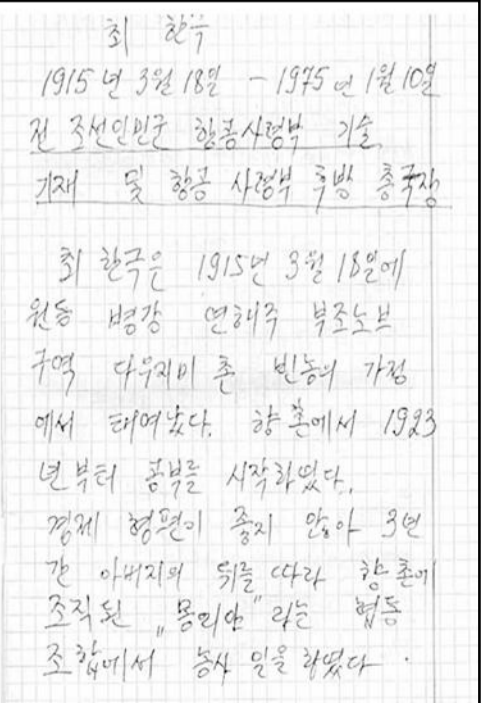 최 한국
1915년 3월 18일 - 1975년 1월 10일
전 조선인민군 항공사령부 기술
기재 및 항공 사령부 후방 총국장
최 한국은 1915년 3월 18일에
원동 변강 연해주 부조노브
구역 다우지미 촌 빈농의 가정
에서 태여났다. 향촌에서 1923
년부터 공부를 시작하였다.
경제 형편이 좋지 않아 3년
간 아버지의 뒤를 따라 향촌에
조직된 „몽리안" 라는 협동
조합에서 농사 일을 하였다.